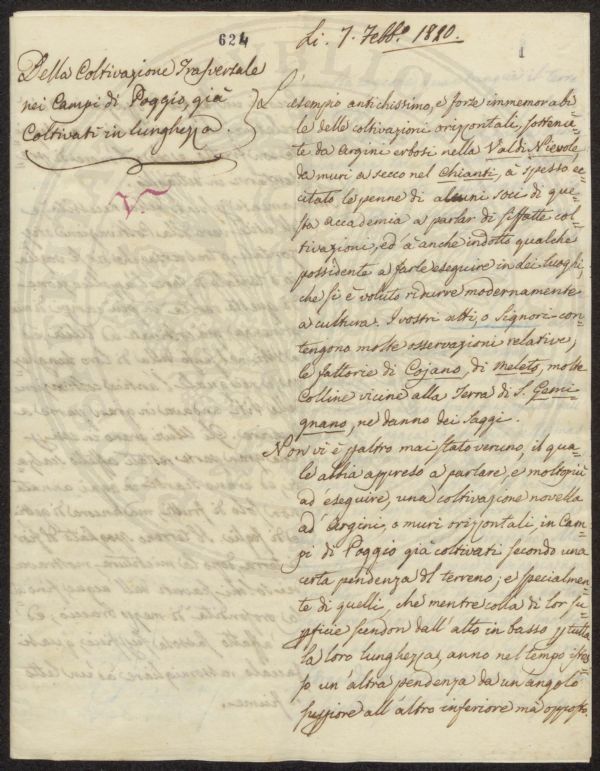 624
Li. 7. Febb.º 1820.
1
Della Coltivazione Trasversale
nei Campi di Poggio, già
Coltivati in lunghezza.
L'esempio antichissimo, e forze immemorabi=
le delle coltivazioni orizzontali, sostenu=
te da argini erbosi nella Val di Nievole,
da muri a secco nel Chianti, à spesso ec=
citato le penne di alcuni soci di que=
sta accademia a parlar di siffatte col=
tivazioni, ed à anche indotto qualche
possidente a farle eseguire in dei luoghi,
che si è voluto ridurre modernamente
a cultura. I vostri atti, o Signori con=
tengono molte osservazioni relative,
le fattorie di Cojano, di Meleto, molte
Colline vicine alla Terra di S. Gemi=
gnano, ne danno dei saggi.
Non vi è p altro mai stato veruno, il qua=
le abbia appreso a parlare, e molto più
ad eseguire, una coltivazione novella
ad argini, o muri orizzontali, in Cam=
pi di Poggio già coltivati secondo una
certa pendenza del terreno; e specialmen=
te di quelli, che mentre colla di lor su=
pficie scendon dall'alto in basso p tutta
la loro lunghezza, anno nel tempo istes=
so un'altra pendenza da un angolo
supiore all'altro inferiore mà opposto.